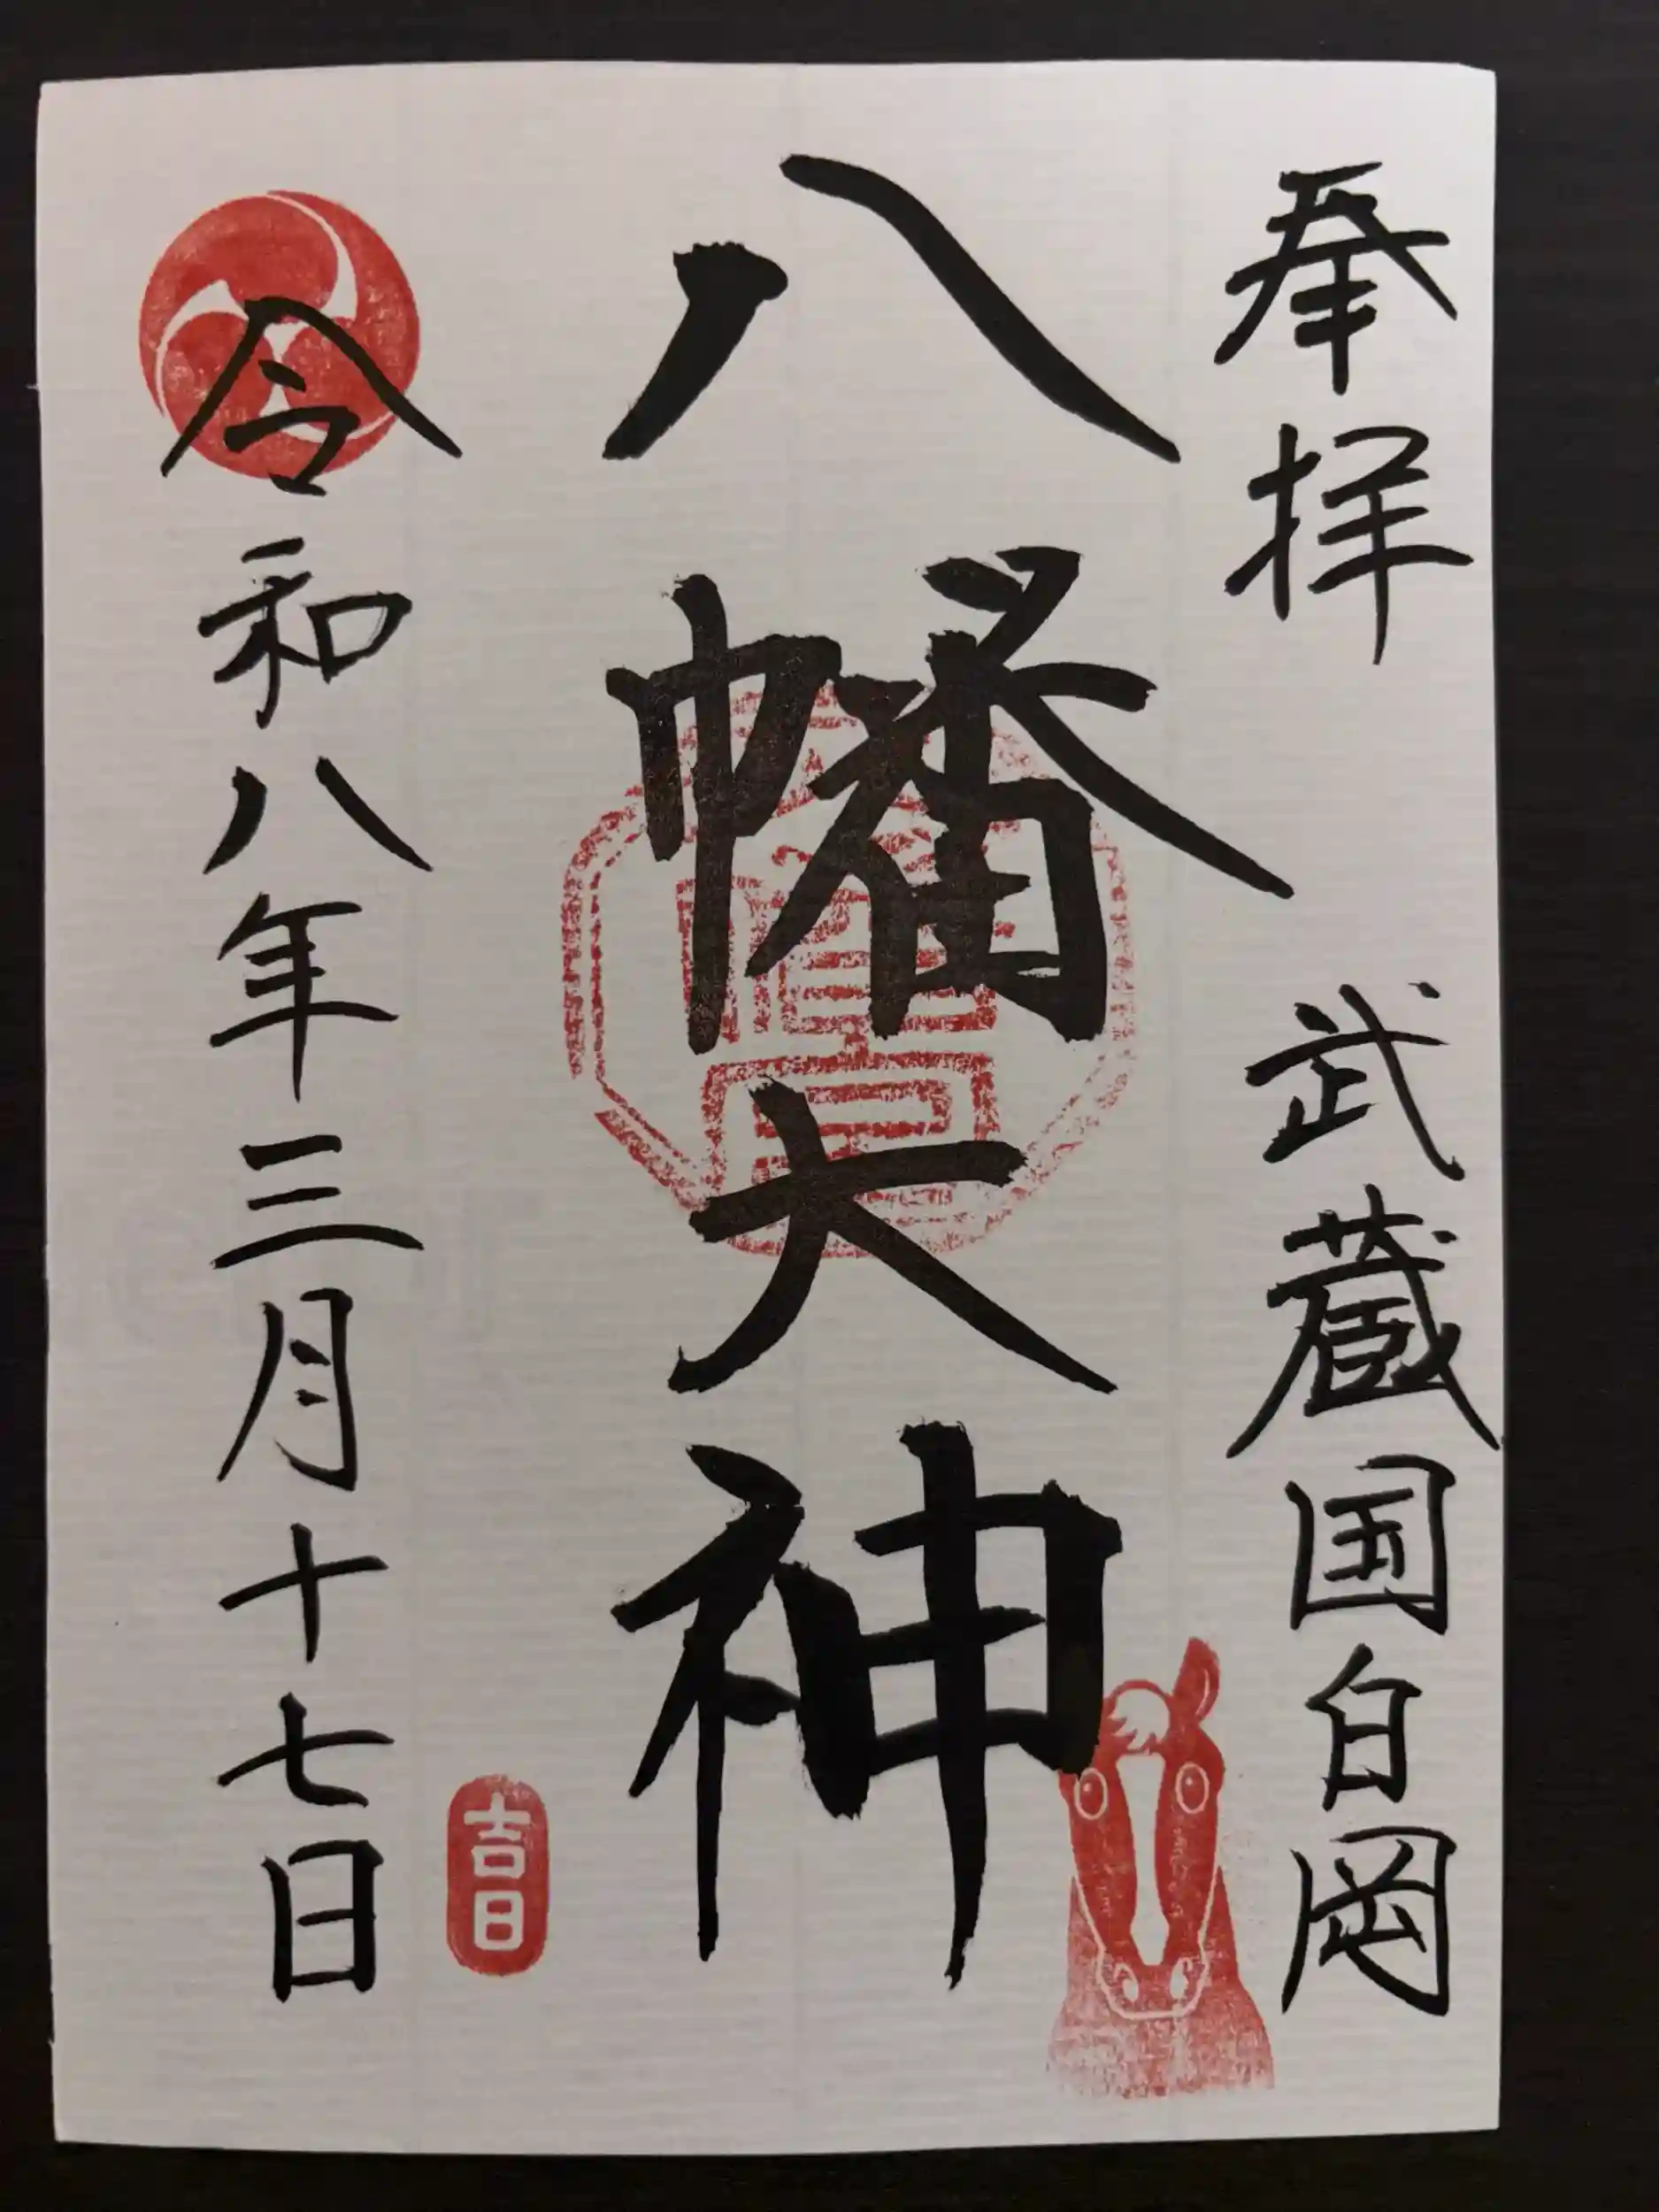 奉拝 武蔵国白岡
八幡大神
令和八年三月十七日
吉日